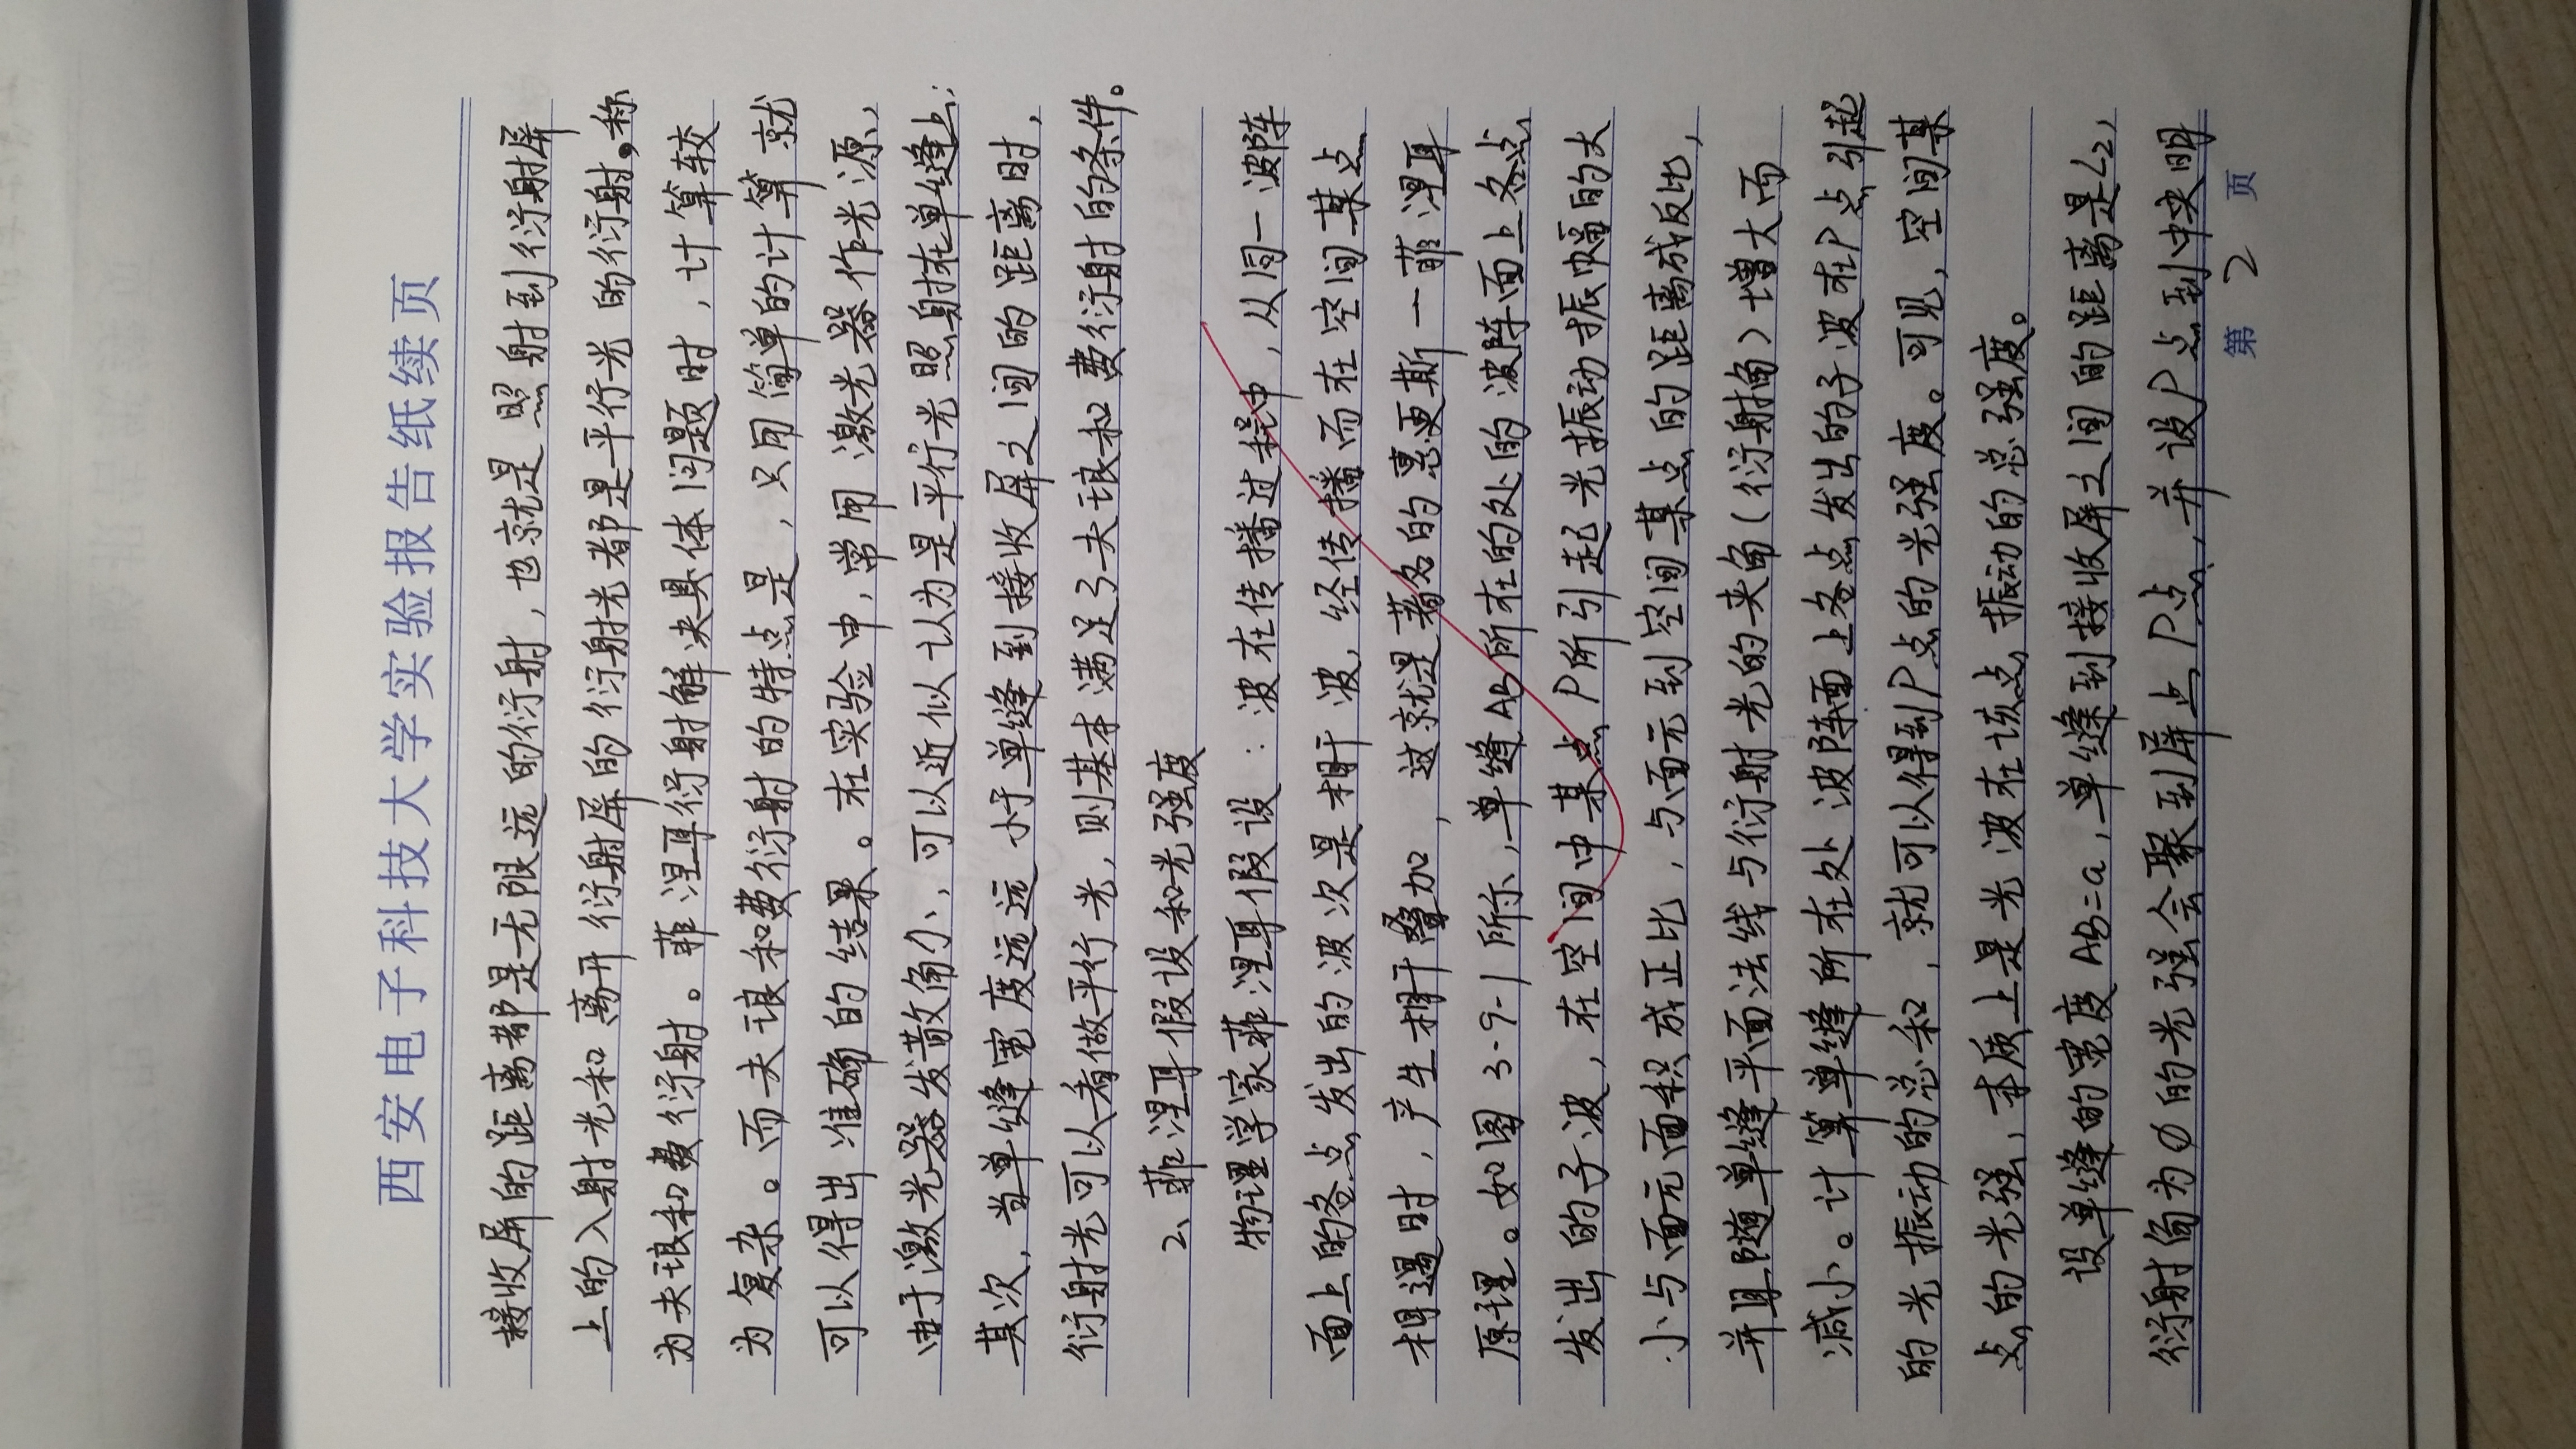 西安电子科技大学实验报告纸续页
接收屏的距离都是无限远的衍射，也就是照射到衍射屏
上的入射光和离开衍射屏的衍射光都是平行光的衍射，称
为夫琅和费衍射。菲涅耳衍射解决具体问题时，计算较
为复杂。而夫琅和费衍射的特点是，只用简单的计算就
可以得出准确的结果。在实验中，常用激光器作光源，
由于激光器发散角小，可以近似认为是平行光照射在单缝上；
其次，当单缝宽度远远小于单缝到接收屏之间的距离时，
衍射光可以看做平行光，则基本满足了夫琅和费衍射的条件。
2、菲涅耳假设和光强度
物理学家菲涅耳假设：波在传播过程中，从同一波阵
面上的各点发出的波次是相干波，经传播而在空间某点
相遇时，产生相干叠加，这就是著名的惠更斯一菲涅耳
原理。如图3-9-1所示，单缝AB所在的处的波阵面上各点
发出的子波，在空间中某点P所引起光振动振幅的大
小与面元面积成正比，与面元到空间某点的距离成反比，
并且随单缝平面法线与衍射光的夹角（衍射角）增大而
减小。计算单缝所在处波阵面上各点发出的子波在P点引起
的光振动的总和，就可以得到P点的光强度。可见，空间某
点的光强，本质上是光波在该点振动的总强度。
设单缝的宽度AB=a，单缝到接收屏之间的距离是L2，
衍射角为φ的光强会聚到屏上P点，并设P点到中央明
第 2 页